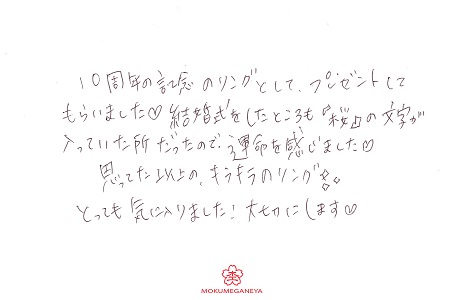 10周年の記念のリングとして、プレゼントして
もらいました♡ 結婚式をしたところも『桜』の文字が
入っていた所だったので、運命を感じました♡
思ってた以上の、キラキラのリング✨
とっても気に入りました！大切にします♡
MOKUMEGANEYA